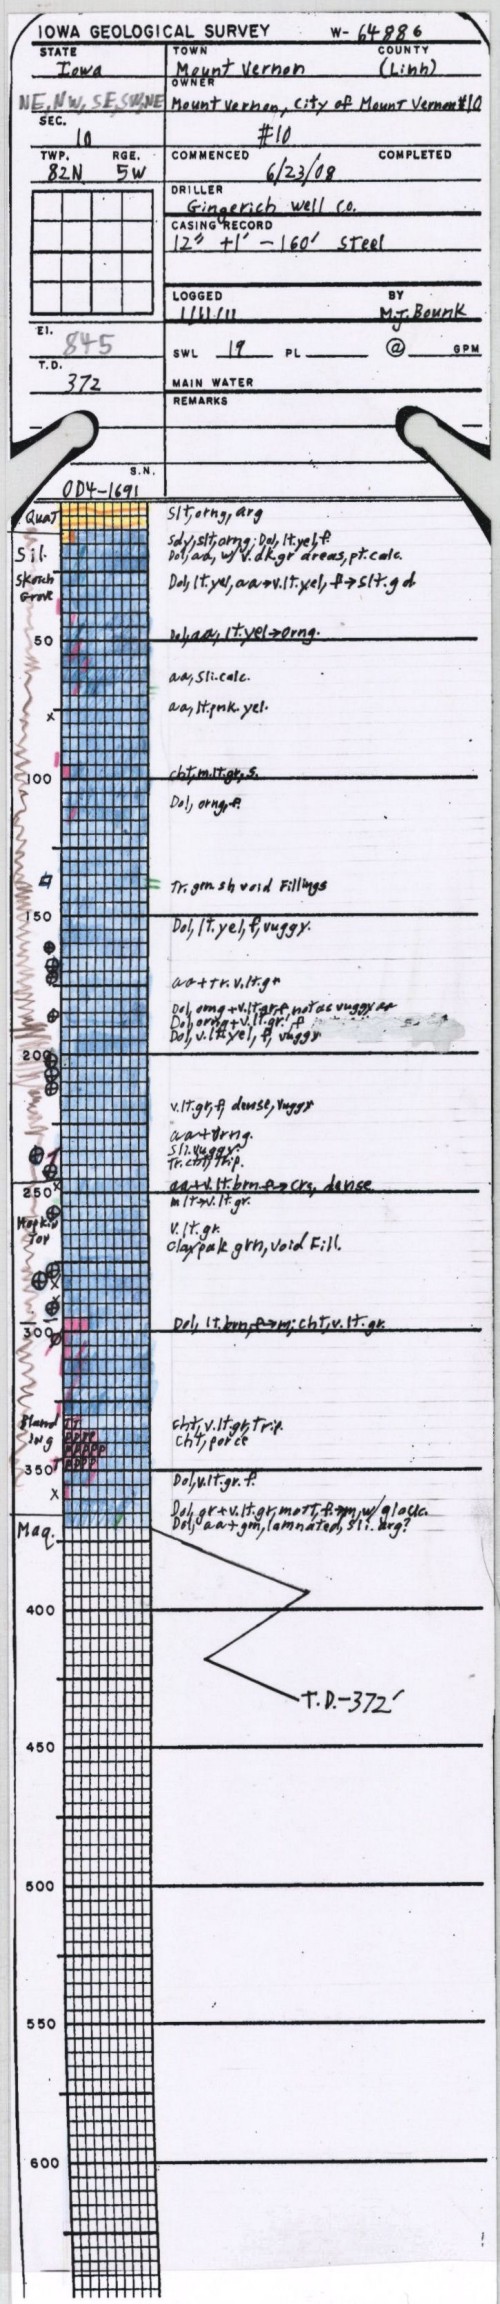 IOWA GEOLOGICAL SURVEY W- 64886
STATE TOWN COUNTY
Iowa Mount Vernon (Linn)
OWNER
NE, NW, SE, SW, NE Mount Vernon, City of Mount Vernon #10
SEC.
10 #10
TWP. RGE. COMMENCED COMPLETED
82N 5W 6/23/08
DRILLER
Gingerich Well Co.
CASING RECORD
12" +1' - 160' Steel
LOGGED BY
1/11/11 M.J. Bounk
El.
845
SWL 19 PL @ GPM
T.D.
372 MAIN WATER
REMARKS
S.N.
OD4-1691
Quat Slt, orng, arg
Sdy, slt, orng; Dol, lt. yel, f
Sil. Dol, aa, w/ v. dk. gr areas, pt. calc.
Scotch Dol, lt. yel, aa→v. lt. yel, f→slt. gd
Grove
50 Dol, aa, lt. yel→orng.
aa, sli. calc.
x aa, lt. pnk. yel.
100 cht, m. lt. gr, s.
Dol, orng, f.
Tr. grn sh void fillings
150
Dol, lt. yel, f, vuggy.
aa + tr. v. lt. gr
Dol, orng + v. lt. gr. f, not as vuggy
Dol, orng + v. lt. gr. f
Dol, v. lt. yel, f, vuggy
200
v. lt. gr, f, dense, vuggy
aa + orng.
Sli. vuggy.
Tr. cht, trip.
250 aa + v. lt. brn f→crs, dense
m lt→v. lt. gr.
Hopkin v. lt. gr.
ton Clay, pale grn, void fill.
300 Dol, lt. brn, f→m; cht, v. lt. gr.
Bland Cht, v. lt. gr, trip.
ing Cht, porce
350
Dol, v. lt. gr. f.
x
Dol, gr + v. lt. gr, mott, f→m, w/ glauc.
Maq. Dol, aa + grn, lamnated, sli. arg?
400
T.D.-372'
450
500
550
600